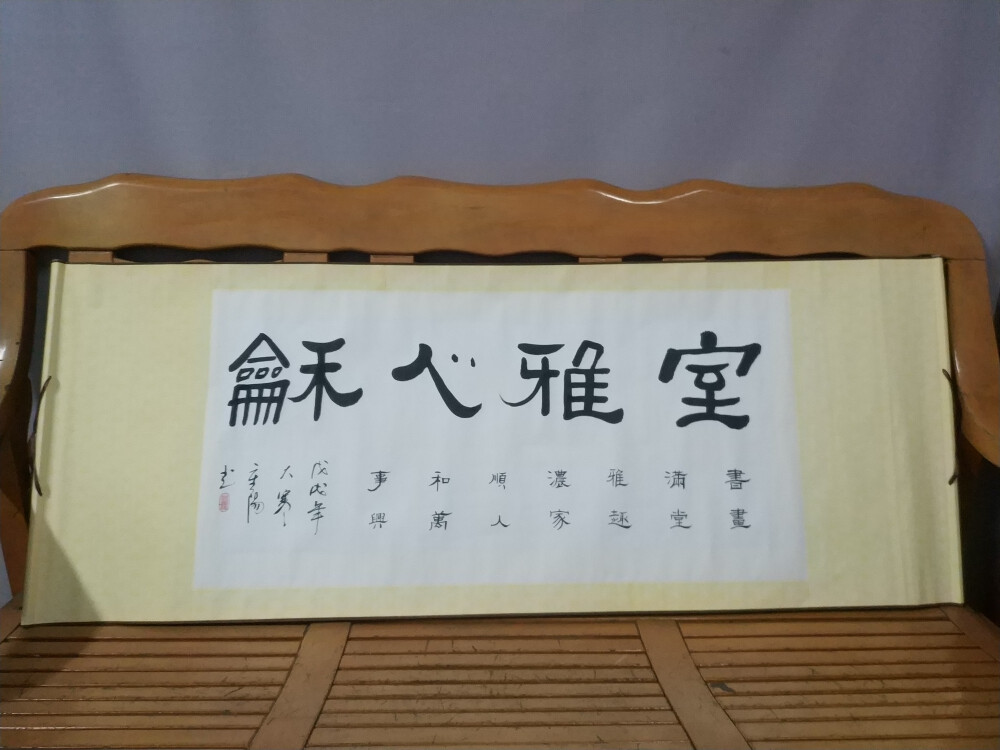 室雅心龢
書畫
滿堂
雅趣
濃家
順人
和萬
事興
戊戌年
大寒
重陽
书